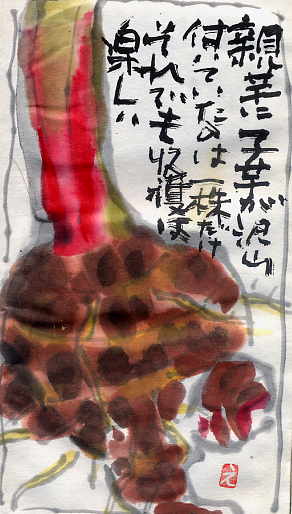 親芋に子芋が沢山
付いていたのは一株だけ
それでも収穫は
楽しい